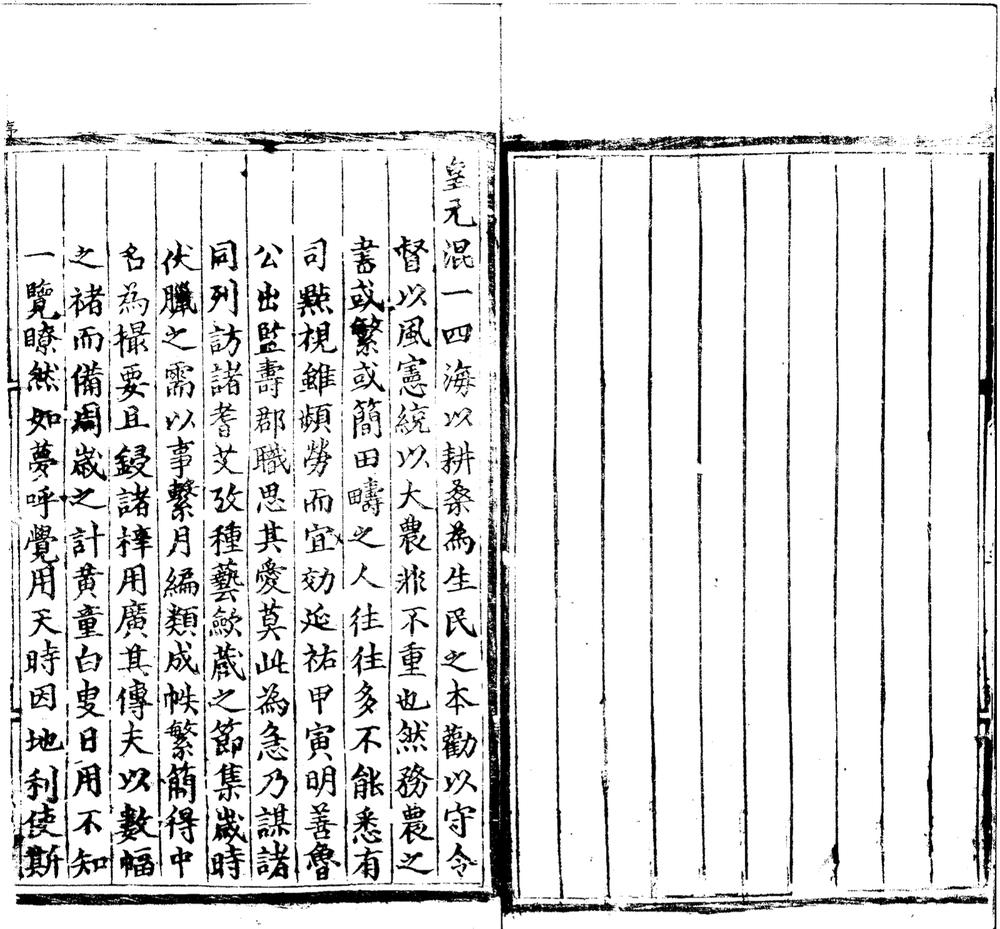 皇元混一四海以耕桑為生民之本勸以守令
督以風憲統以大農非不重也然務農之
書或繁或簡田疇之人往往多不能悉有
司㸃視雖頻勞而宜効延祐甲寅明善魯
公出監壽郡職思其憂莫此為急乃謀諸
同列訪諸耆艾攷種藝歛蔵之節集歲時
伏臘之需以事繫月編類成帙繁簡得中
名為撮要且鋟諸梓用廣其傳夫以數幅
之褚而備周歲之計黄童白叟日用不知
一覽瞭然如夢呼覺用天時因地利使斯